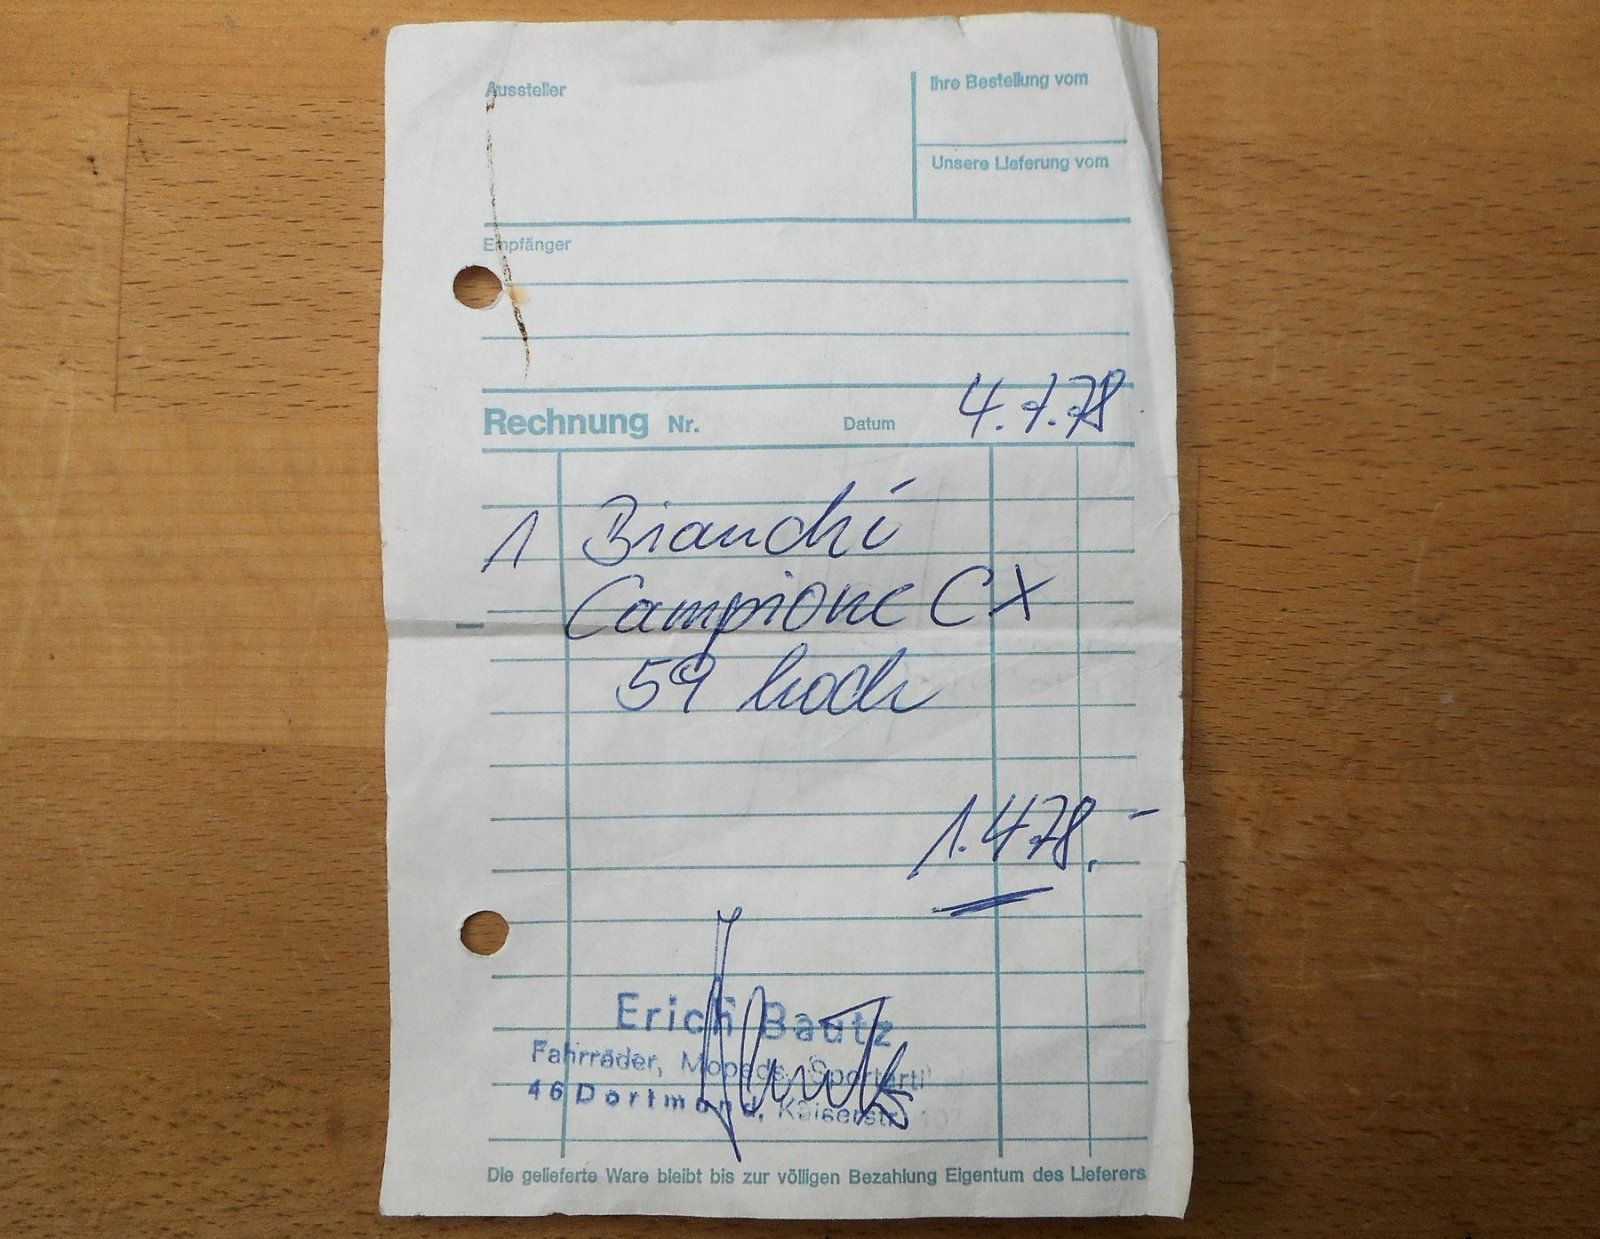 Aussteller
Ihre Bestellung vom
Unsere Lieferung vom
Empfänger
Rechnung Nr. Datum 4.7.78
1 Bianchi
Campione CX
59 hoch
1.478,-
Erich Bautz
Fahrräder, Mopeds, Sportarti
46 Dortmund, Kaiserstr. 107
Die gelieferte Ware bleibt bis zur völligen Bezahlung Eigentum des Lieferers